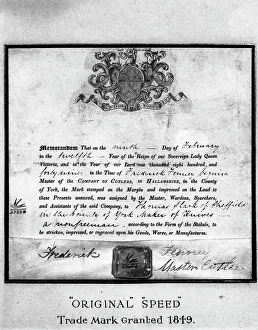 Memorandum That on the ninth Day of February
in the twelfth Year of the Reign of our Sovereign Lady Queen
Victoria, and in the Year of our Lord one thousand eight hundred, and
forty nine in the Time of Frederick Fenney Esquire
Master of the COMPANY OF CUTLERS, in HALLAMSHIRE, in the County
of York, the Mark stamped on the Margin and impressed on the Lead
to these Presents annexed, was assigned by the Master, Wardens, Searchers,
and Assistants of the said Company, to Thomas of Sheffield
in the County of York Maker of Knives
a nonfreeman, according to the Form of the Statute,
to be stricken, impressed, or engraved upon his Goods, Wares, or Manufactures.
Frederick Fenney
Master Cutler
"ORIGINAL" "SPEED"
Trade Mark Granted 1849.